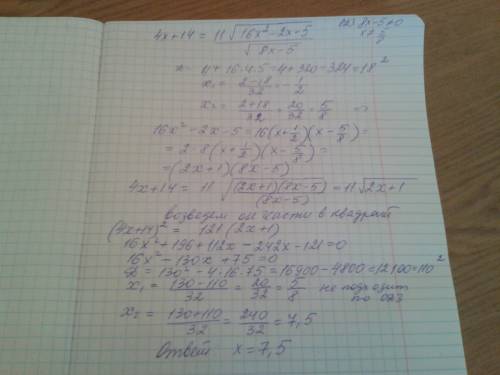 4x+14 = 11√(16x²-2x-5) / √(8x-5)
ОДЗ 8x-5≠0
x≠5/8
4+16·4·5=4+320=324=18²
x₁ = (2-18)/32 = -1/2
x₂ = (2+18)/32 = 20/32 = 5/8 ⇒
16x²-2x-5=16(x+1/2)(x-5/8)=
=2·8(x+1/2)(x-5/8)=
=(2x+1)(8x-5)
4x+14 = 11 √((2x+1)(8x-5)/(8x-5)) = 11√(2x+1)
возведем части в квадрат
(4x+14)² = 121(2x+1)
16x²+196+112x-242x-121=0
16x²-130x+75=0
D=130²-4·16·75=16900-4800=12100=110²
x₁ = (130-110)/32 = 20/32 = 5/8 не подходит по ОДЗ
x₂ = (130+110)/32 = 240/32 = 7,5
Ответ x=7,5